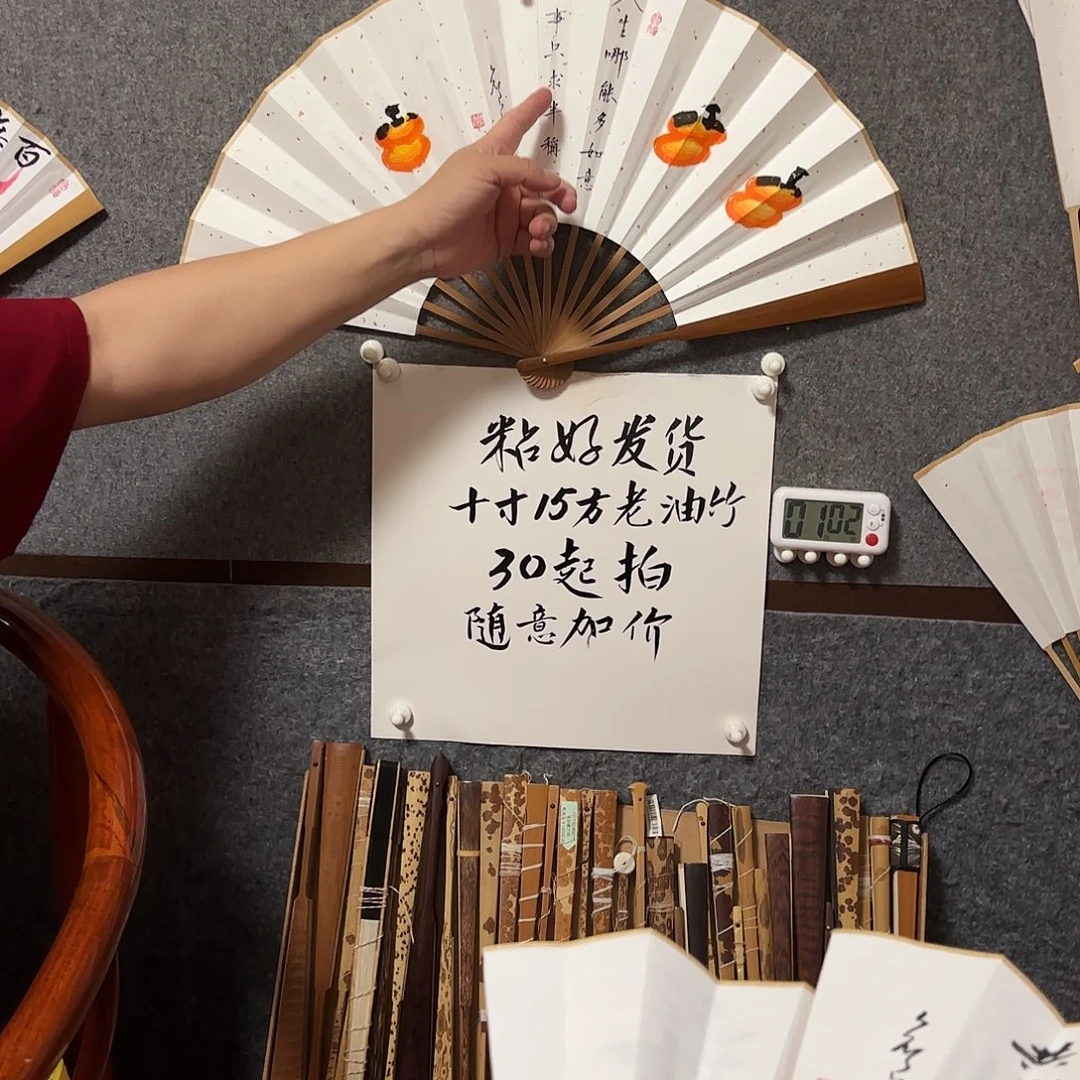 人生哪能多如意
事只求半称
粘好发货
十寸15方老油竹
30起拍
随意加价
0102
百